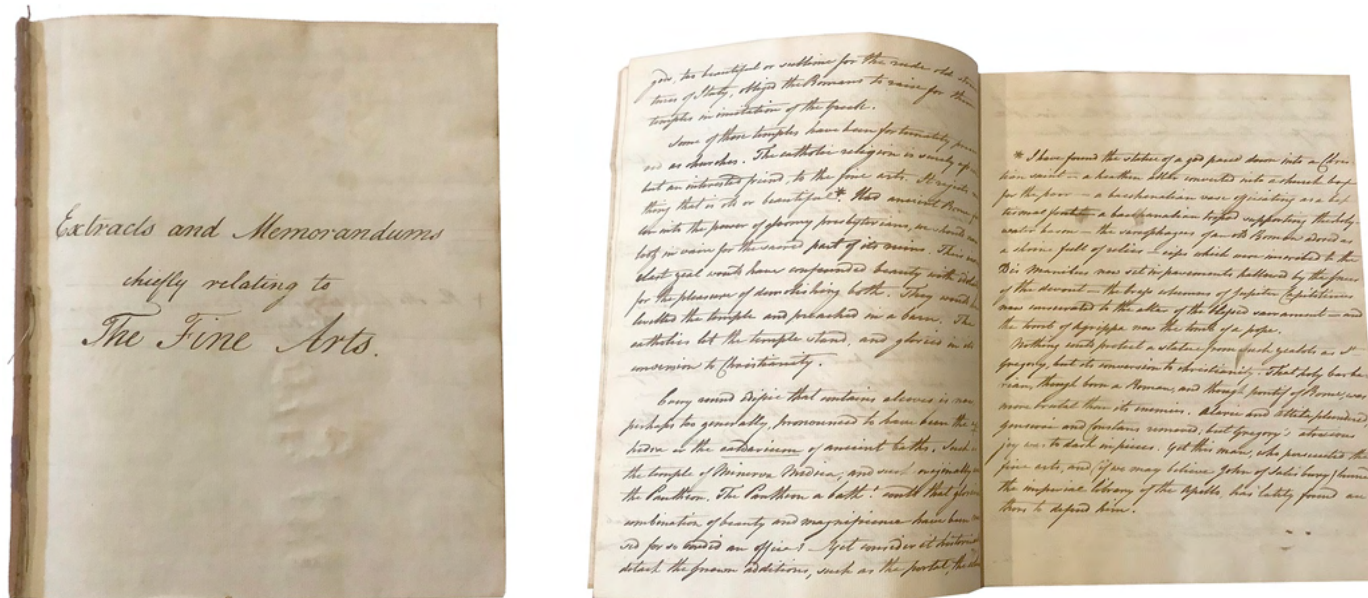 Extracts and Memorandums
chiefly relating to
The Fine Arts.
gods, too beautiful or sublime for the rude old
tures of Italy, obliged the Romans to raise for them
temples in imitation of the Greek.
Some of those temples have been fortunately
ed as churches. The catholic religion is surely
but an interested friend, to the fine arts. It rejects
thing that is old or beautiful.* Had ancient Rome
into the power of gloomy presbyterians, we should now
look in vain for the sacred part of its ruins. Their
zeal would have confounded beauty with
for the pleasure of demolishing both. They would have
levelled the temple and preached in a barn. The
catholic let the temple stand, and glories in
conversion to Christianity.
Every round edifice that contains alcoves is now,
perhaps too generally, pronounced to have been the
hedra or the caldarium of ancient baths. Such is
the temple of Minerva Medica, and such originally
the Pantheon. The Pantheon a bath! could that glorious
combination of beauty and magnificence have been
sed for so sordid an office? Yet consider it
detach the known additions, such as the portal, the
* I have found the statue of a god pared down into a Chris
tian saint — a heathen altar converted into a church box
for the poor — a bacchanalian vase officiating as a bap
tismal font — a bacchanalian tripod supporting the holy
water bason — the sarcophagus of an old Roman adored as
a shrine full of relics — cips which were inscribed to the
Dis Manibus now set in pavements hallowed by the knees
of the devout — the brass columns of Jupiter Capitolinus
now consecrated to the altar of the blessed sacrament — and
the tomb of Agrippa now the tomb of a pope.
Nothing could protect a statue from such zealots as St
Gregory, but its conversion to christianity. That holy barba
rian, though born a Roman, and though pontif of Rome, was
more brutal than its enemies. Alaric and Attila plundered,
Genseric and Constans removed; but Gregory's atrocious
joy was to dash in pieces. Yet this man, who persecuted the
fine arts, and (if we may believe John of Salisbury) burned
the imperial library of the Apollo, has lately found au
thors to defend him.